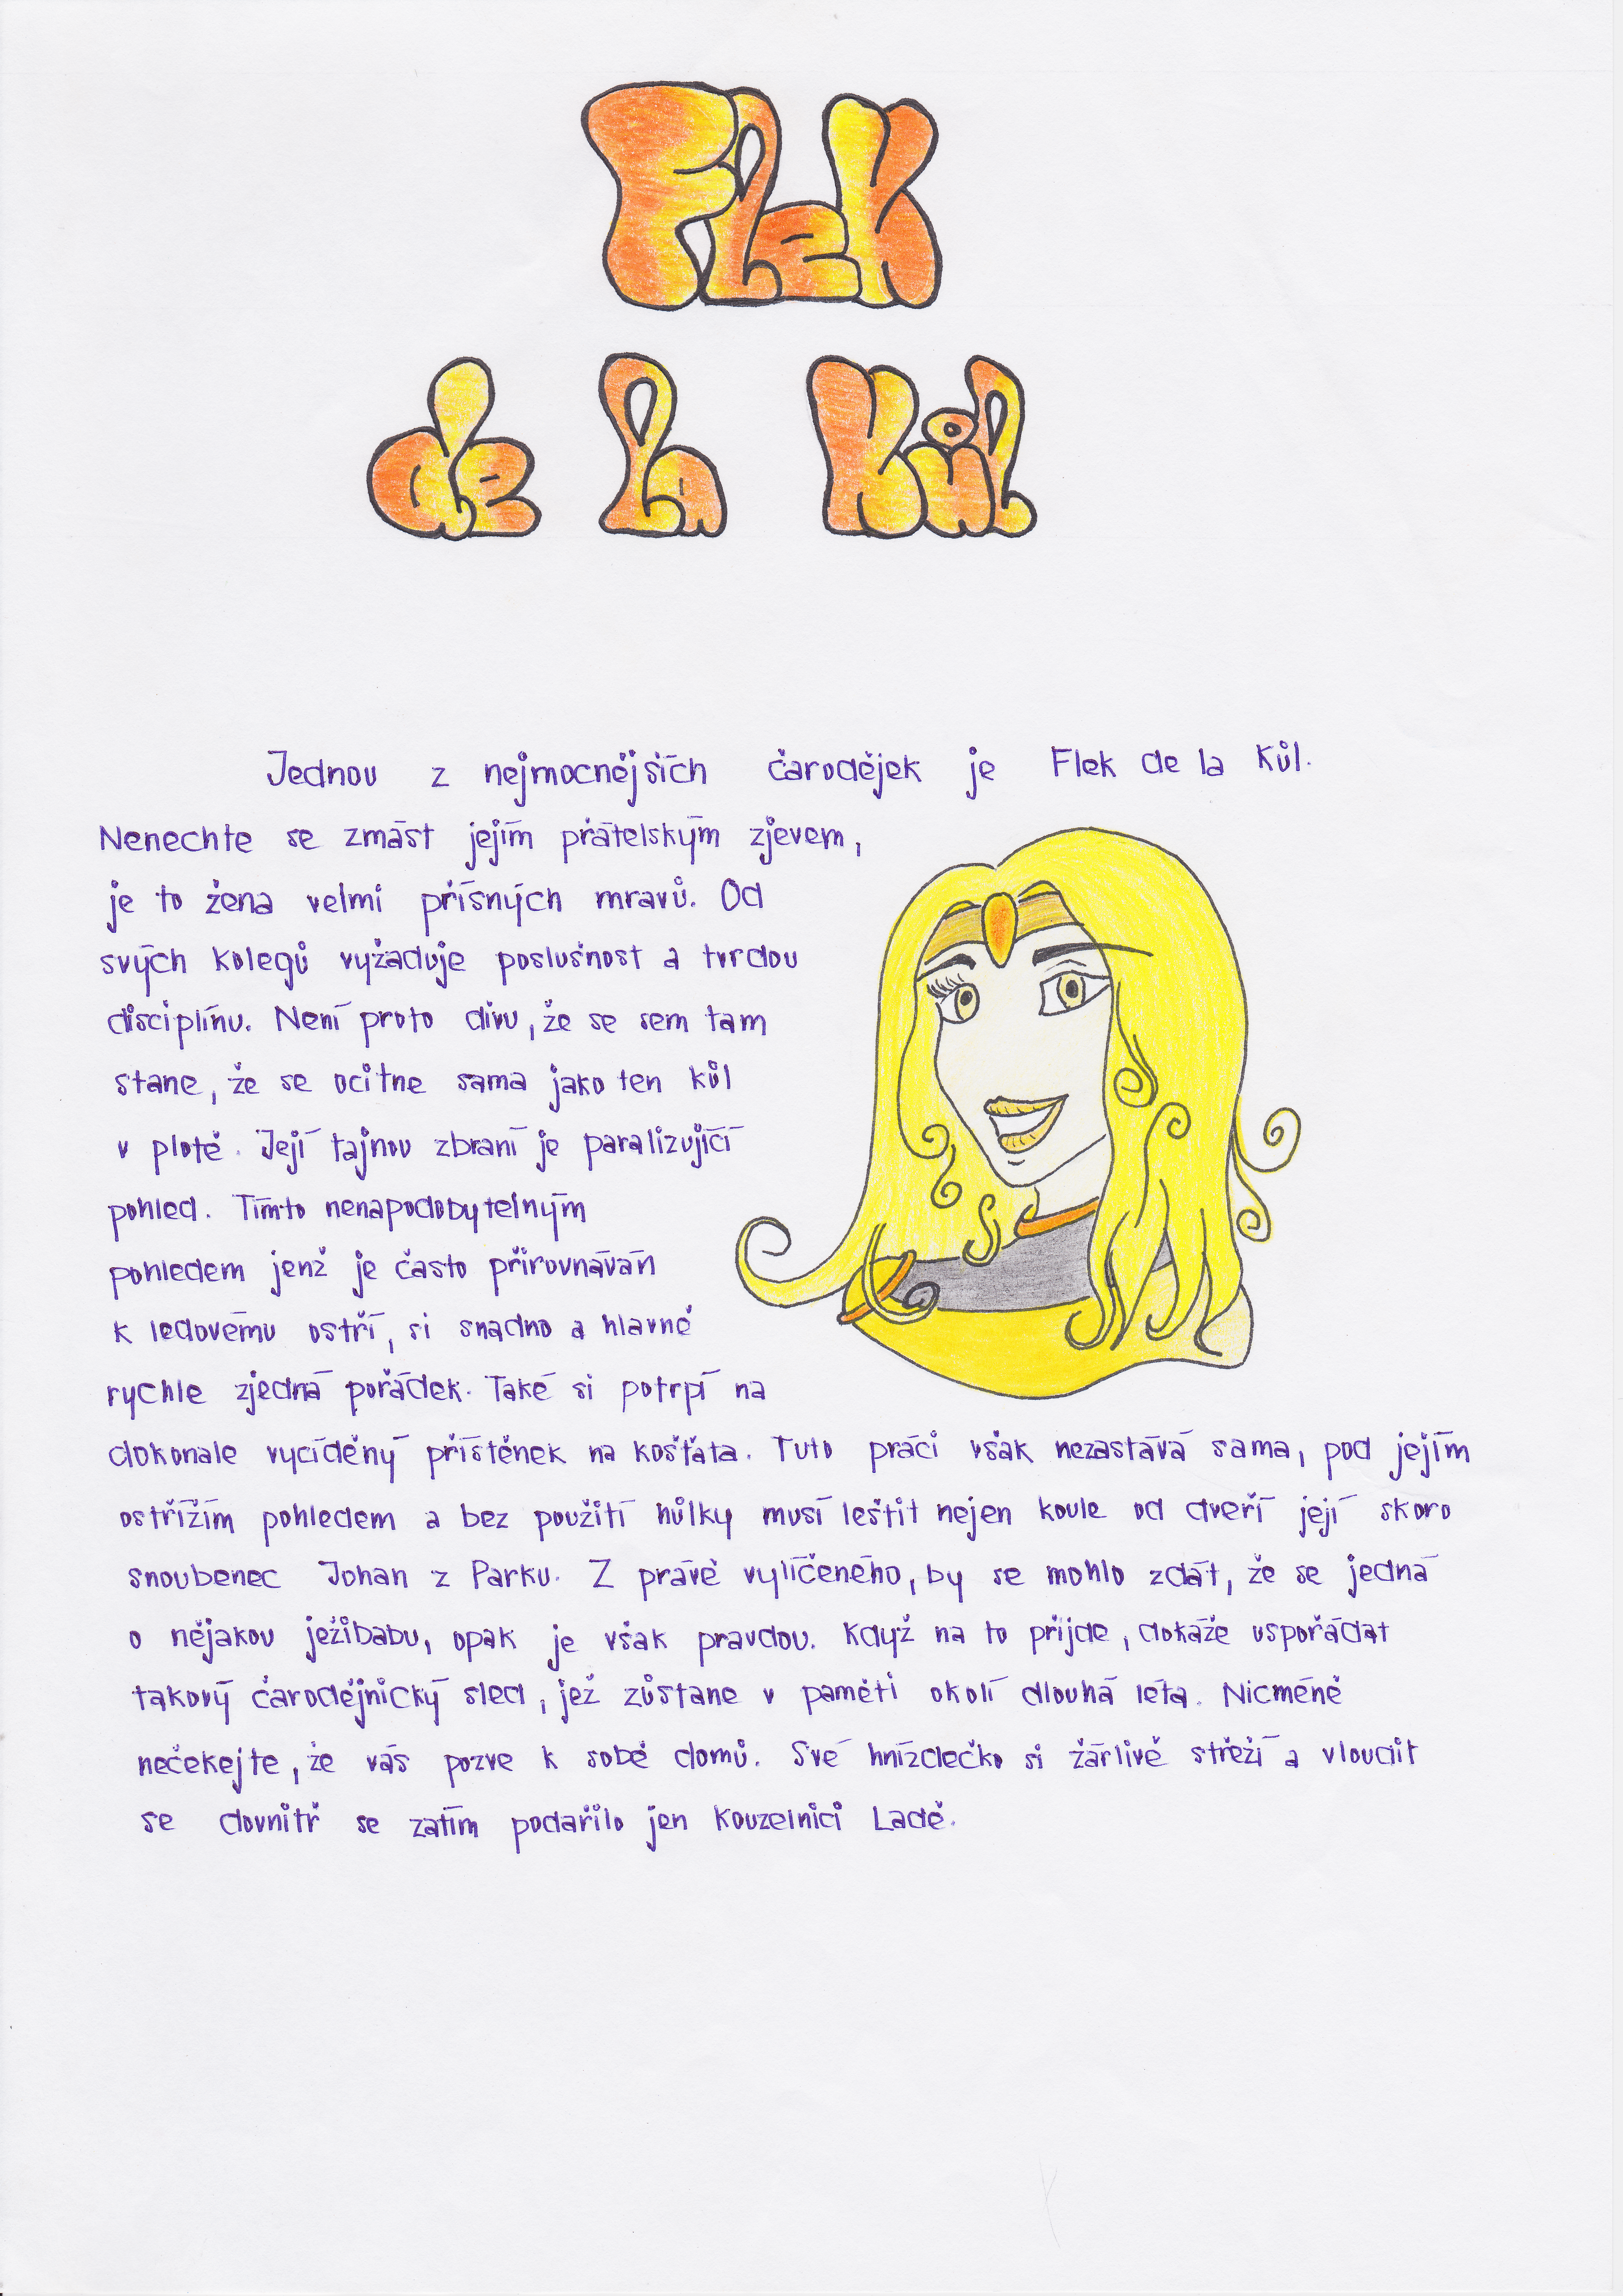 Flek
de la Kůl
Jednou z nejmocnějších čarodějek je Flek de la Kůl.
Nenechte se zmást jejím přátelským zjevem,
je to žena velmi přísných mravů. Od
svých kolegů vyžaduje poslušnost a tvrdou
disciplínu. Není proto divu, že se sem tam
stane, že se ocitne sama jako ten kůl
v plotě. Její tajnou zbraní je paralizující
pohled. Tímto nenapodobytelným
pohledem jenž je často přirovnáván
k ledovému ostří, si snadno a hlavně
rychle zjedná pořádek. Také si potrpí na
dokonale vycíděný příštěnek na košťata. Tuto práci však nezastává sama, pod jejím
ostřížím pohledem a bez použití hůlky musí leštit nejen koule od dveří její skoro
snoubenec Johan z Parku. Z právě vylíčeného, by se mohlo zdát, že se jedná
o nějakou ježibabu, opak je však pravdou. Když na to přijde, dokáže uspořádat
takový čarodějnický sled, jež zůstane v paměti okolí dlouhá léta. Nicméně
nečekejte, že vás pozve k sobě domů. Své hnízdečko si žárlivě střeží a vloudit
se dovnitř se zatím podařilo jen kouzelnici Ladě.